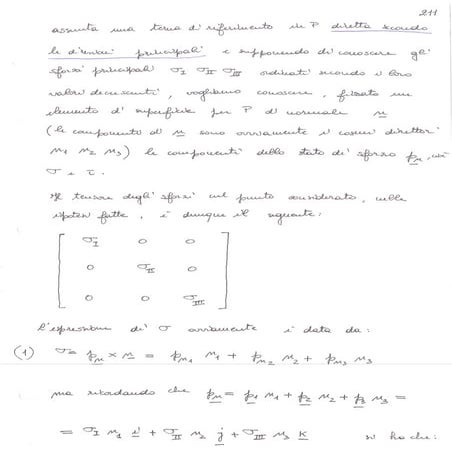 211
assunta una terna di riferimento in P diretta secondo
le direzioni principali e supponendo di conoscere gli
sforzi principali σI σII σIII ordinati secondo i loro
valori decrescenti, vogliamo conoscere, fissato un
elemento di superficie per P di normale n
(le componenti di n sono ovviamente i coseni direttori
n1 n2 n3) le componenti dello stato di sforzo pn, cioè
σ e τ.
Il tensore degli sforzi nel punto considerato, nelle
ipotesi fatte, è dunque il seguente:
σI 0 0
0 σII 0
0 0 σIII
L'espressione di σ ovviamente è data da:
(1) σ = pn × n = pn1 n1 + pn2 n2 + pn3 n3
ma ricordando che pn = p1 n1 + p2 n2 + p3 n3 =
= σI n1 i + σII n2 j + σIII n3 k si ha che: